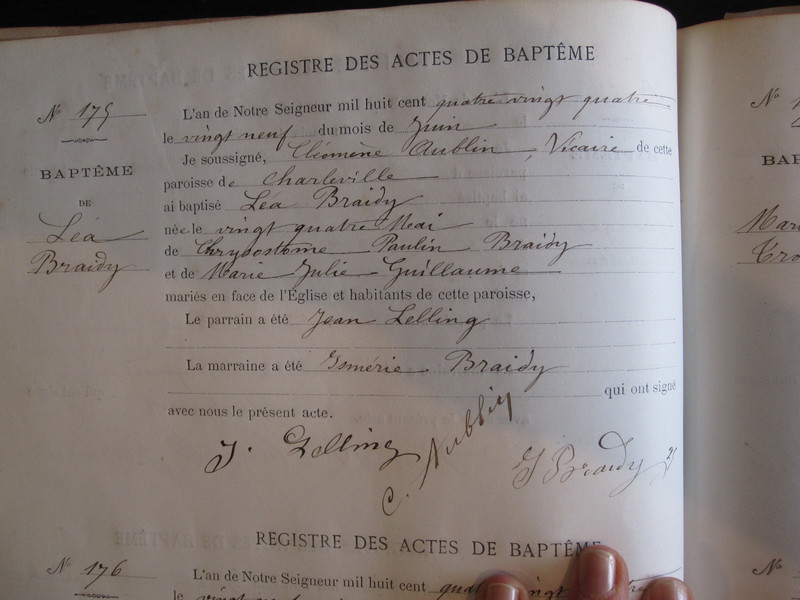 REGISTRE DES ACTES DE BAPTÊME
Nº 175
BAPTÊME
DE
Léa
Braidy
L'an de Notre Seigneur mil huit cent quatre vingt quatre
le vingt neuf du mois de Juin
Je soussigné, Cléomène Aublin, Vicaire de cette
paroisse de Charleville
ai baptisé Léa Braidy
née le vingt quatre Mai
de Chrysostome Paulin Braidy
et de Marie Julie Guillaume
mariés en face de l'Église et habitants de cette paroisse,
Le parrain a été Jean Lelling
La marraine a été Ismérie Braidy
qui ont signé
avec nous le présent acte.
J. Lelling
C. Aublin
I Braidy
REGISTRE DES ACTES DE BAPTÊME
Nº 176
L'an de Notre Seigneur mil huit cent
le vingt
Nº
BAP
Nº